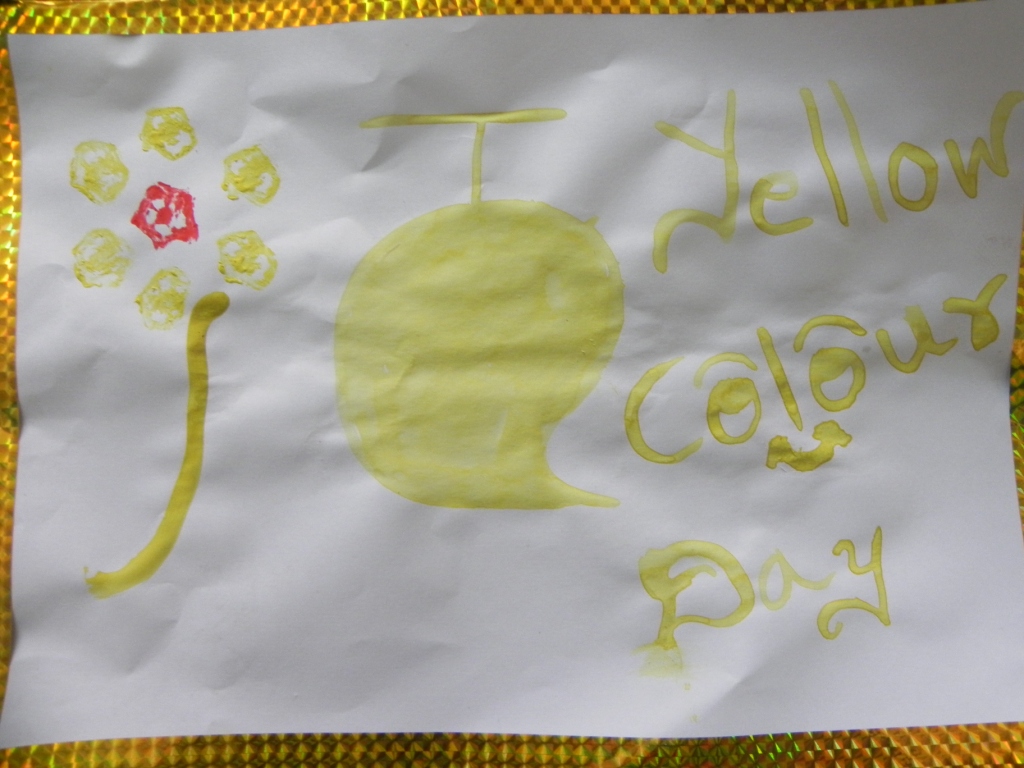 Yellow
Colour
Day